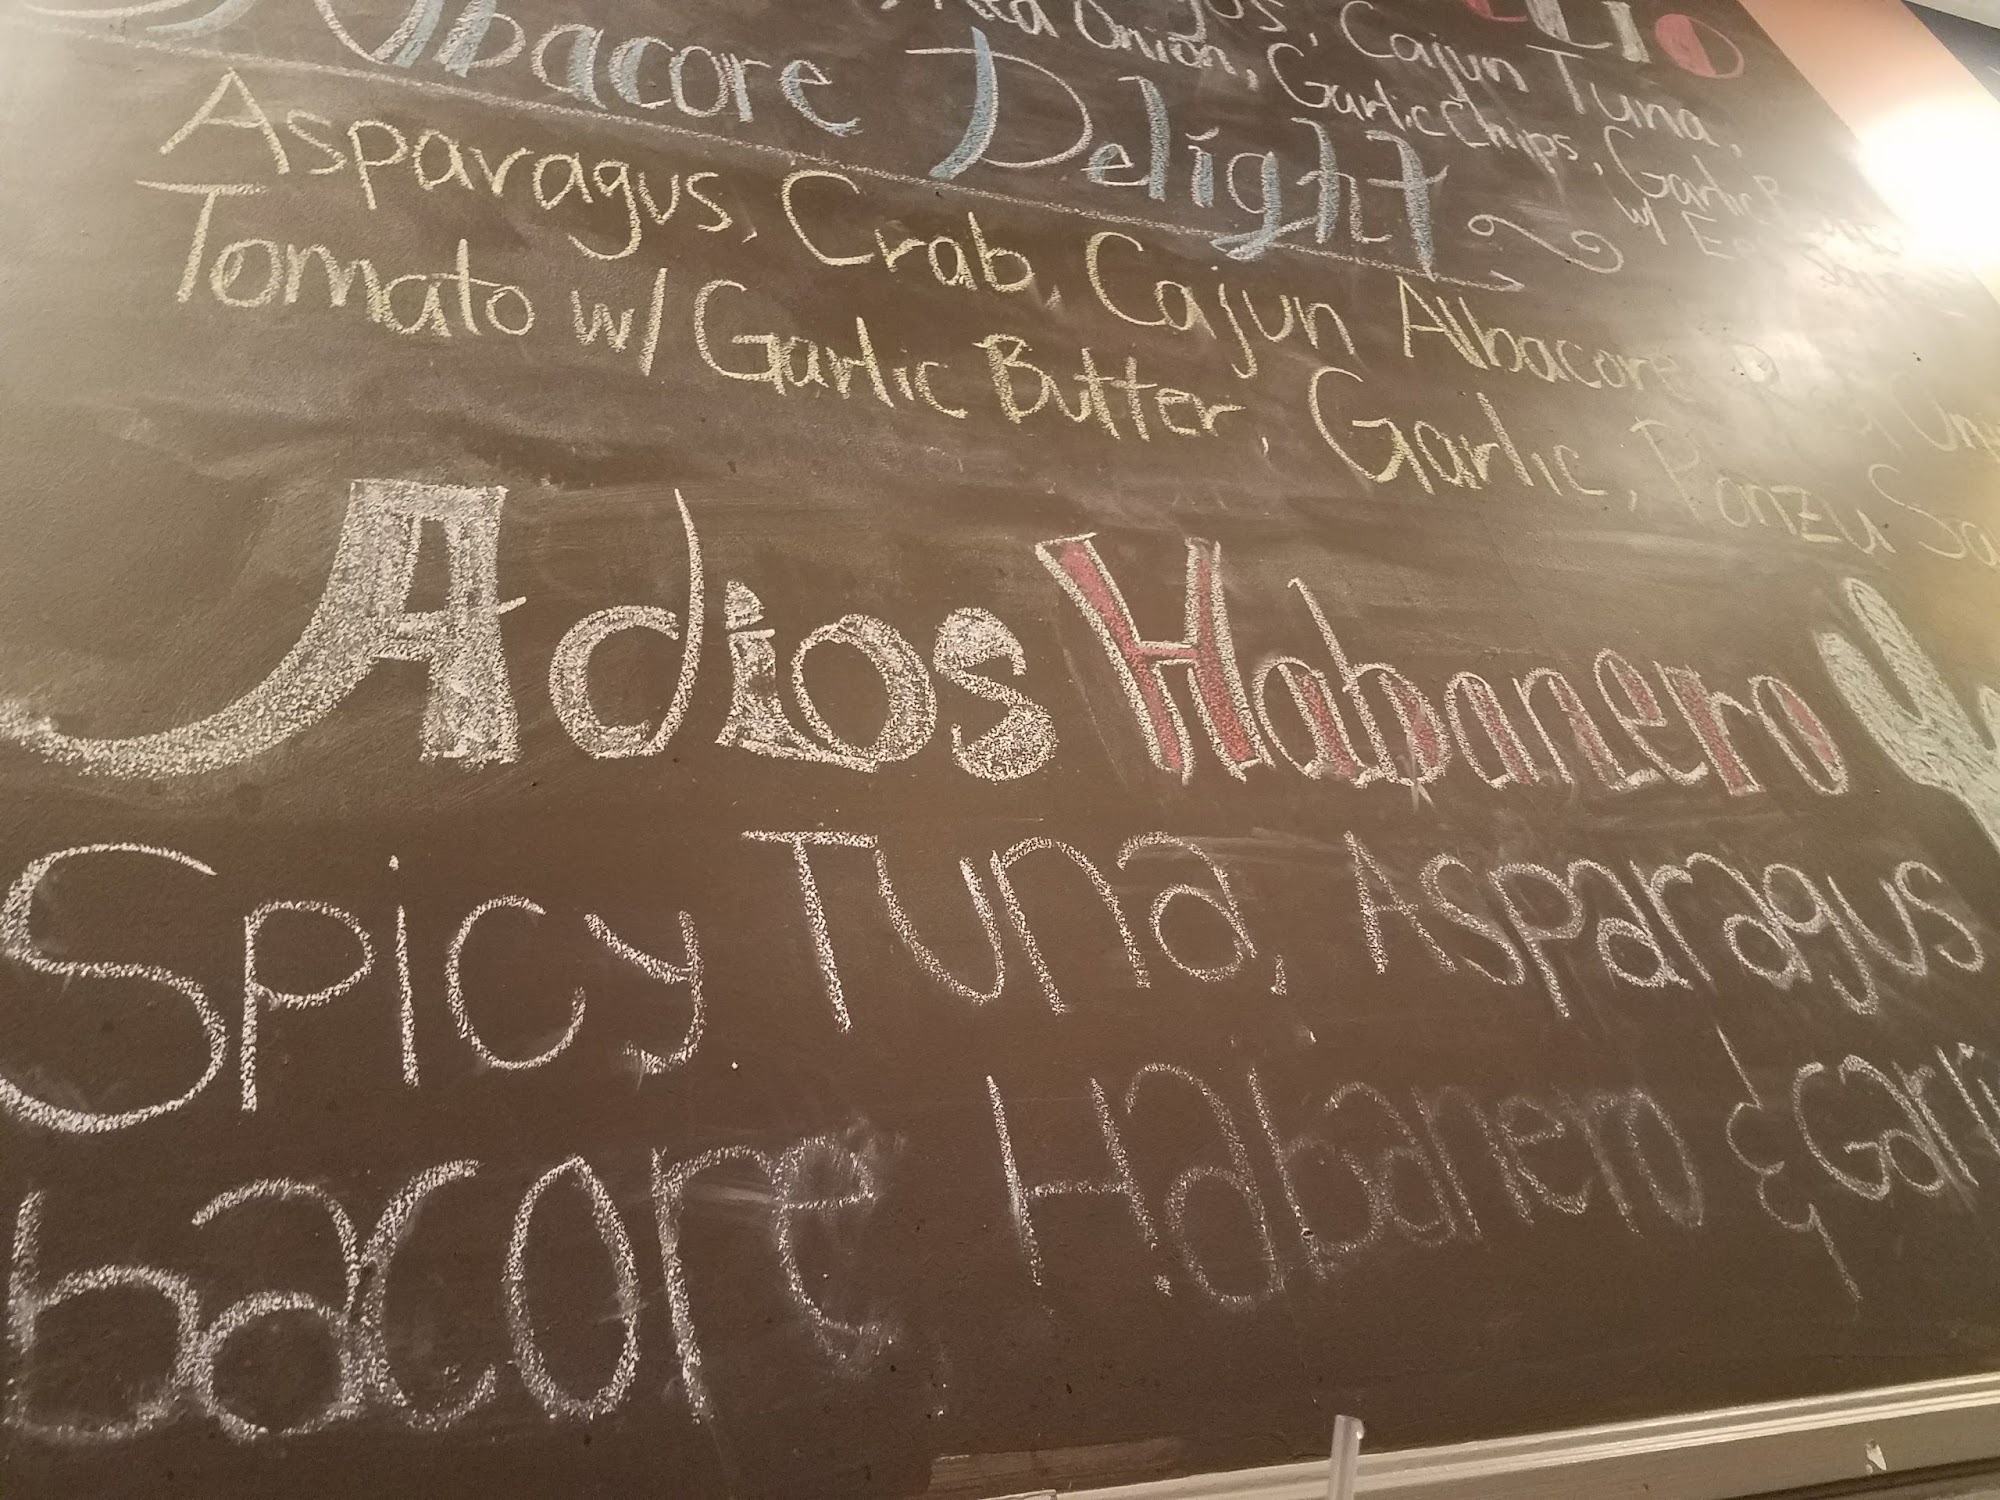 Cajun Tuna,
Red Onion, Garlic Chips, Garlic
w/
Albacore Delight
Asparagus, Crab, Cajun Albacore
Tomato w/ Garlic Butter, Garlic, Ponzu
Adios Habanero
Spicy Tuna, Asparagus
bacore, Habanero & Garli